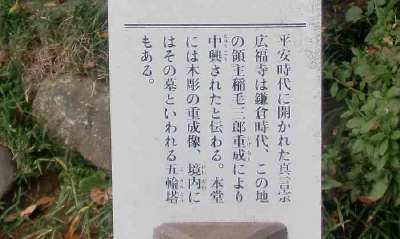 平安時代に開かれた真言宗
広福寺は鎌倉時代、この地
の領主稲毛三郎重成により
中興されたと伝わる。本堂
には木彫の重成像、境内に
はその墓といわれる五輪塔
もある。